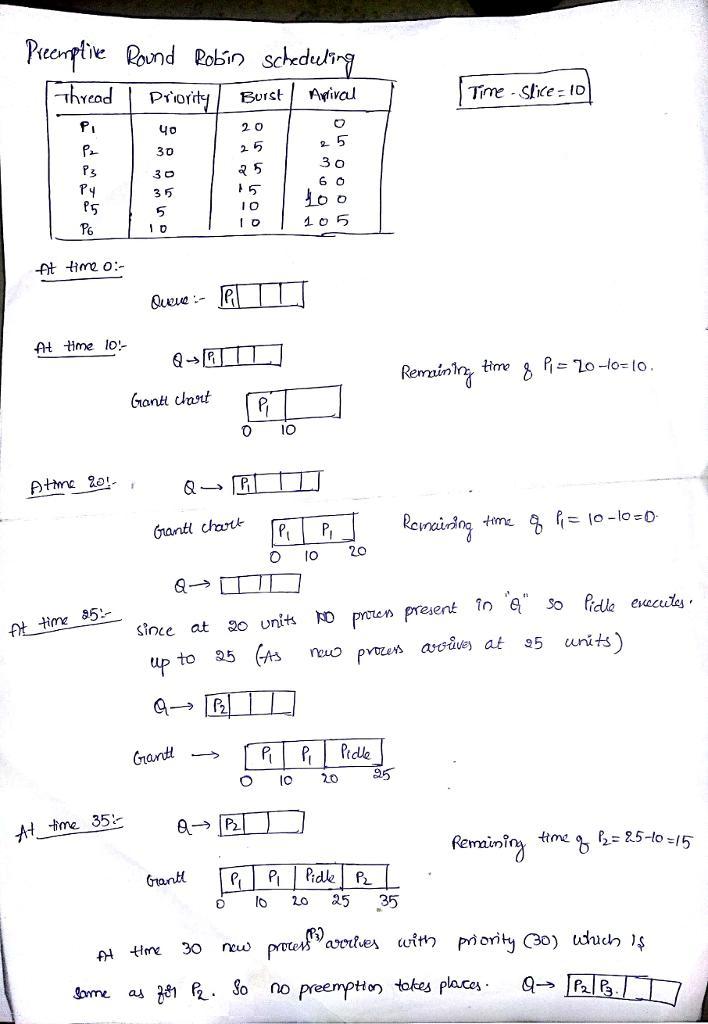 Preemptive Round Robin scheduling
Thread Priority Burst Arrival
Time-Slice=10
P1 40 20 0
P2 30 25 25
P3 30 25 30
P4 35 15 60
P5 5 10 100
P6 10 10 105
At time 0:-
Queue :- P1
At time 10:-
Q→ P1
Remaining time of P1 = 20-10=10.
Grantt chart P1
0 10
At time 20:-
Q → P1
Grantt chart P1 P1
Remaining time of P1 = 10-10=0.
0 10 20
Q→
At time 25:-
since at 20 units NO process present in "Q" so Pidle executes.
up to 25 (As new process arrives at 25 units)
Q→ P2
Grantt → P1 P1 Pidle
0 10 20 25
At time 35:-
Q→ P2
Remaining time of P2 = 25-10=15
Grantt P1 P1 Pidle P2
0 10 20 25 35
At time 30 new process (P3) arrives with priority (30) which is
same as for P2. So no preemption takes places. Q→ P2 P3.